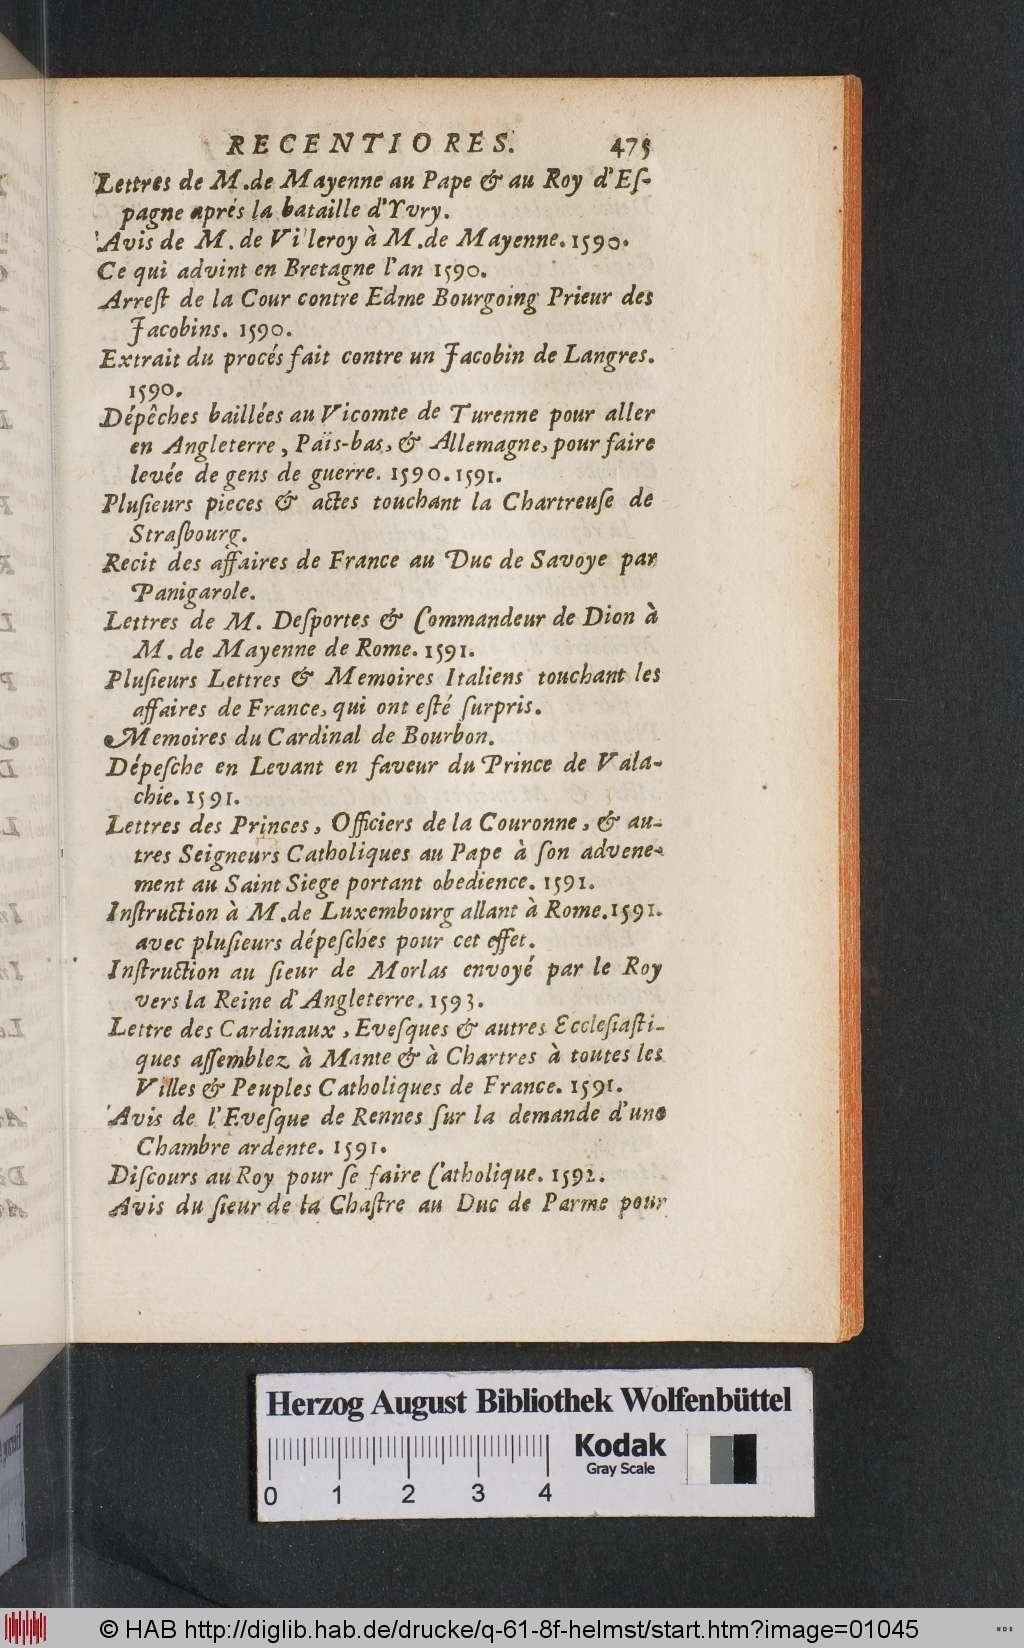 RECENTIORES. 475
Lettres de M. de Mayenne au Pape & au Roy d'Eſ-
pagne aprés la bataille d'Yvry.
Avis de M. de Villeroy à M. de Mayenne. 1590.
Ce qui advint en Bretagne l'an 1590.
Arreſt de la Cour contre Edme Bourgoing Prieur des
Jacobins. 1590.
Extrait du procés fait contre un Jacobin de Langres.
1590.
Dépêches baillées au Vicomte de Turenne pour aller
en Angleterre, Païs-bas, & Allemagne, pour faire
levée de gens de guerre. 1590. 1591.
Pluſieurs pieces & actes touchant la Chartreuſe de
Straſbourg.
Recit des affaires de France au Duc de Savoye par
Panigarole.
Lettres de M. Deſportes & Commandeur de Dion à
M. de Mayenne de Rome. 1591.
Pluſieurs Lettres & Memoires Italiens touchant les
affaires de France, qui ont eſté ſurpris.
Memoires du Cardinal de Bourbon.
Dépeſche en Levant en faveur du Prince de Vala-
chie. 1591.
Lettres des Princes, Officiers de la Couronne, & au-
tres Seigneurs Catholiques au Pape à ſon advene-
ment au Saint Siege portant obedience. 1591.
Inſtruction à M. de Luxembourg allant à Rome. 1591.
avec pluſieurs dépeſches pour cet effet.
Inſtruction au ſieur de Morlas envoyé par le Roy
vers la Reine d'Angleterre. 1593.
Lettre des Cardinaux, Eveſques & autres Eccleſiaſti-
ques aſſemblez à Mante & à Chartres à toutes les
Villes & Peuples Catholiques de France. 1591.
Avis de l'Eveſque de Rennes ſur la demande d'une
Chambre ardente. 1591.
Diſcours au Roy pour ſe faire Catholique. 1592.
Avis du ſieur de la Chaſtre au Duc de Parme pour
Herzog August Bibliothek Wolfenbüttel
Kodak
Gray Scale
0 1 2 3 4
© HAB http://diglib.hab.de/drucke/q-61-8f-helmst/start.htm?image=01045